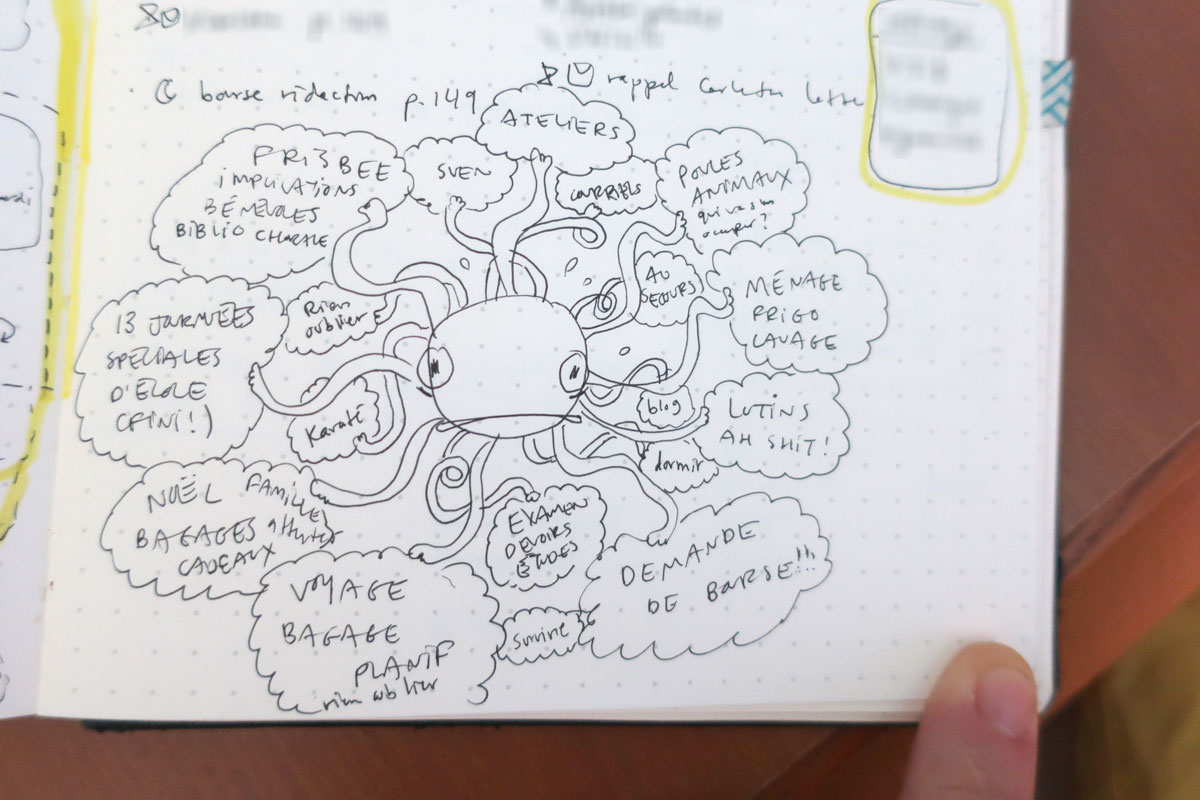 bourse rédaction p.149
rappel Carleton lettre
ATELIERS
FRISBEE
IMPLICATIONS
BÉNÉVOLES
BIBLIO CHORALE
SVEN
COURRIELS
POULES
ANIMAUX
qui va s'en
occuper?
AU
SECOURS
MÉNAGE
FRIGO
LAVAGE
13 JOURNÉES
SPÉCIALES
D'ÉCOLE
(FINI!)
Rien
oublier
Karaté
blog
LUTINS
AH SHIT!
dormir
NOËL FAMILLE
BAGAGES
CADEAUX
EXAMEN
DEVOIRS
ÉTUDES
DEMANDE
DE BOURSE!!!
VOYAGE
BAGAGE
PLANIF
rien oublier
Survivre